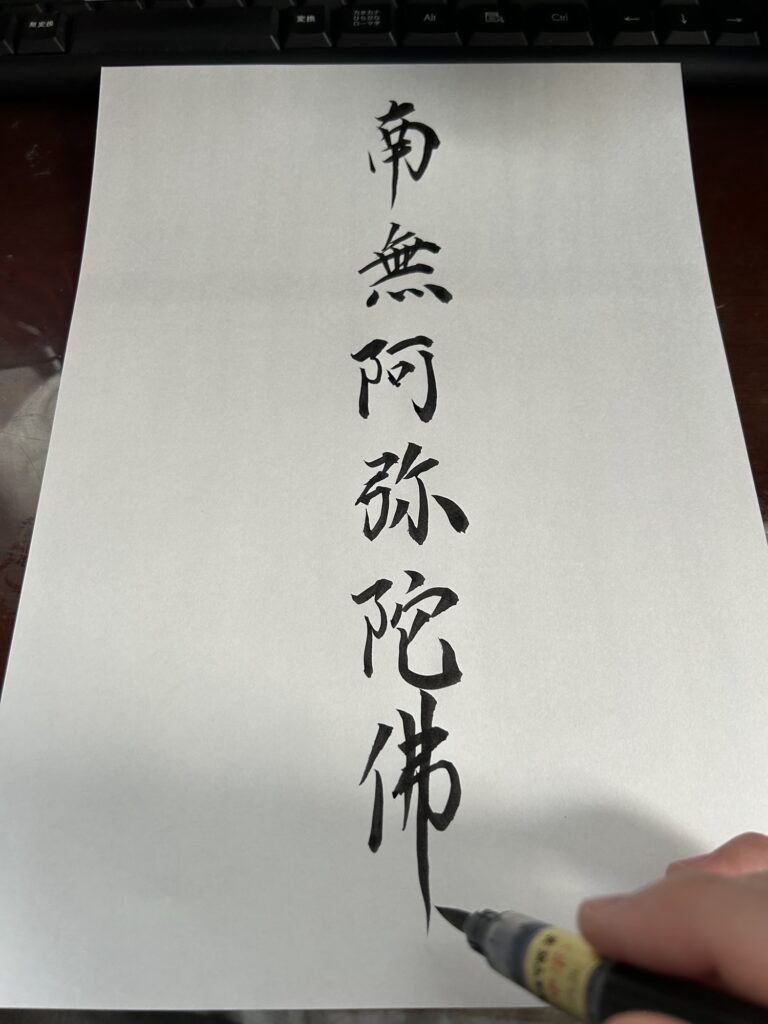 無変換
変換
カタカナ
ひらがな
ローマ字
Alt
Ctrl
←
↓
→
南無阿弥陀佛